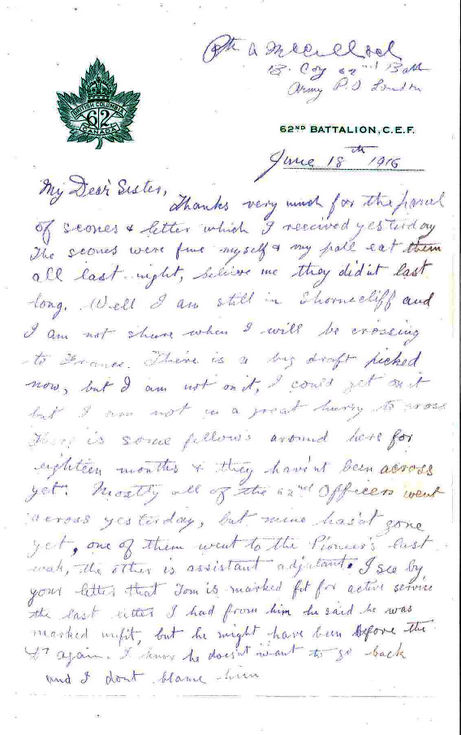 Pte A McCulloch
B. Coy 62nd Batt
Army P.O London
BRITISH COLUMBIA
62
CANADA
62ND BATTALION, C.E.F.
June 18th 1916
My Dear Sister,
Thanks very much for the parcel
of scones & letter which I received yesterday
The scones were fine myself & my pall eat them
all last night, believe me they didnt last
long. Well I am still in Shornecliff and
I am not shure when I will be crossing
to France. There is a big draft picked
now, but I am not on it, I could get on it
but I am not in a great hurry to cross
There is some fellows around here for
eighteen months & they havn't been across
yet. Mostly all of the 62nd Officers went
across yesterday, but mine hasn't gone
yet, one of them went to the Pioneers last
week, the other is assistant adjutant. I see by
your letter that Tom is marked fit for active service
the last letter I had from him he said he was
marked unfit, but he might have been before the
again. I know he doesn't want to go back
and I dont blame him